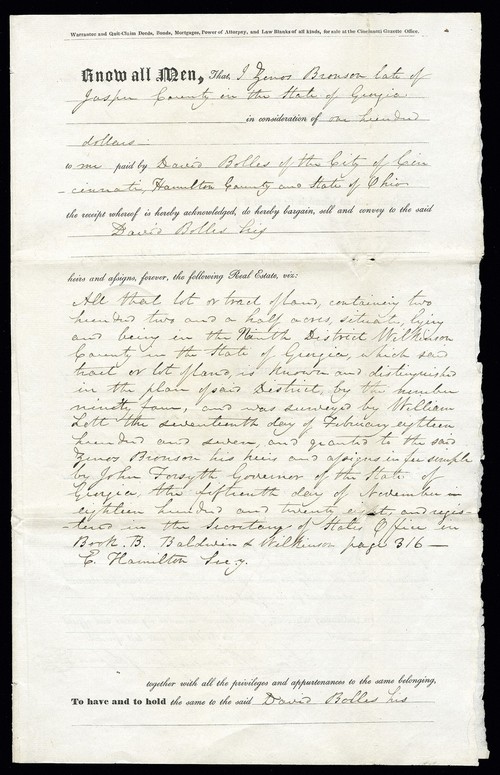 Warrantee and Quit-Claim Deeds, Bonds, Mortgages, Power of Attorney, and Law Blanks of all kinds, for sale at the Cincinnati Gazette Office.
Know all Men, That, I Zenos Bronson late of
Jasper County in the State of Georgia
in consideration of one hundred
dollars
to me paid by David Bolles of the City of Cin
-cinnati, Hamilton County and State of Ohio
the receipt whereof is hereby acknowledged, do hereby bargain, sell and convey to the said
David Bolles his
heirs and assigns, forever, the following Real Estate, viz:
All that lot or tract of land, containing two
hundred two and a half acres, situate, lying
and being in the Ninth District Wilkinson
County in the State of Georgia, which said
tract or lot of land, is known and distinguished
in the plan of said District, by the number
ninety four, and was surveyed by William
Lott the seventeenth day of February eighteen
hundred and seven, and granted to the said
Zenos Bronson his heirs and assigns in fee simple
by John Forsyth Governor of the State of
Georgia, the fifteenth day of November in
eighteen hundred and twenty eight, and regis-
-tered in the Secretary of States Office in
Book. B. Baldwin & Wilkinson page 316 —
E. Hamilton Secy.
together with all the privileges and appurtenances to the same belonging,
To have and to hold the same to the said David Bolles his